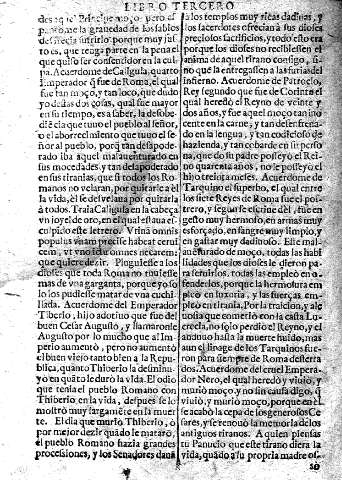 LIBRO TERCERO
des aq̃l Principe moço, pero el
la grauedad de los labios
porque muy jus-
to es, que tenga parte en la pena el
que quiso ser consentidor en la cul-
pa. Acuerdome de Caligula, quarto
Emperador q̃ fue de Roma, el qual
fue tan moço, y tan loco, que dudo
yo destas dos cosas, qual fue mayor
en su tiempo, es a saber, la desobe-
diẽcia que tuuo el pueblo al señor,
o el aborrecimiento que tuuo el se-
ñor al pueblo, porq̃ tan desapode-
rado iba aquel malauenturado en
sus mocedades, y tan desapoderado
en sus tiranias, que si todos los Ro-
manos no velaran, por quitarle a èl
la vida, èl se desvelara por quitarla
à todos. Traìa Caligula en la cabeça
vn joyel de oro, en el qual estaua es-
culpido este letrero. Vtinã omnis
populus vnam precise habeat cerui-
cem, vt vno ictu omnes necarem:
que quiere dezir. Pluguiesse a los
dioses que toda Roma no tuuiesse
mas de vna garganta, porque yo so-
lo los pudiesse matar de vna cuchi-
llada. Acuerdome del Emperador
Tiberio, hijo adotiuo que fue del
buen Cesar Augusto, y llamaronle
Augusto por lo mucho que al Im-
perio aumentò, pero no aumentò
el buen viejo tanto bien a la Repu-
blica, quanto Thiberio la destruy-
ò en quãto le durò la vida. El odio
que tenia el pueblo Romano con
Thiberio en la vida, despues se lo
mostrò muy largamẽte en la muer-
te. El dia que murio Thiberio, ò
por mejor dezir quãdo le mataro,
el pueblo Romano fuzia grandes
procesiones, y los Senadores dauã
a los templos muy ricas dadiuas, y
los sacerdotes ofrecian a sus dioses
preciosos sacrificios, y todo esto era
porque los dioses no recibiessen el
anima de aquel tirano consigo, si-
no que la entregassen a las furias del
infierno. Acuerdome de Patroclo,
Rey segundo que fue de Corinto el
qual heredò el Reyno de veinte y
dos años, y fue aquel moço tan ino-
cente en la carne, y tan desenfrena-
do en la lengua, y tan codicioso de
hazienda, y tan cobarde en su perso-
na, que do su padre posseyò el Rei-
no quarenta años, no le posseyò el
hijo treinta meses. Acuerdome de
Tarquino el superbo, el qual entre
los siete Reyes de Roma fue el pos-
trero, y segun se escriue dèl, fue en
gesto muy hermoso, en armas muy
esforçado, en sangre muy limpio, y
en gastar muy dadiuoso. Este mal-
auẽturado de moço, todas las habi-
lidades que los dioses le dieron pa-
ra seruirlos, todas las empleò en o-
fenderlos, porque la hermosura em-
pleò en luxuria, y las fuerças em-
pleò en tirania. Por la traicion, y ale-
uosia que cometiò con la casta Lu-
crecia, no solo perdiò el Reyno, y el
andando hasta la muerte huido, mas
aun el linage de los Tarquinos fue-
ron para siempre de Roma desterra-
dos. Acuerdome del cruel Empera-
dor Nero, el qual heredò y viuiò, y
muriò moço, y no sin causa digo, q̃
viuiò, y muriò moço, porque en el
se acabò la cepa de los generosos Ce-
sares, y se renouò la memoria de los
antiguos tiranos. A quien piensas
tu Panucio que este tirano diera la
vida, quãdo a su propria madre os-